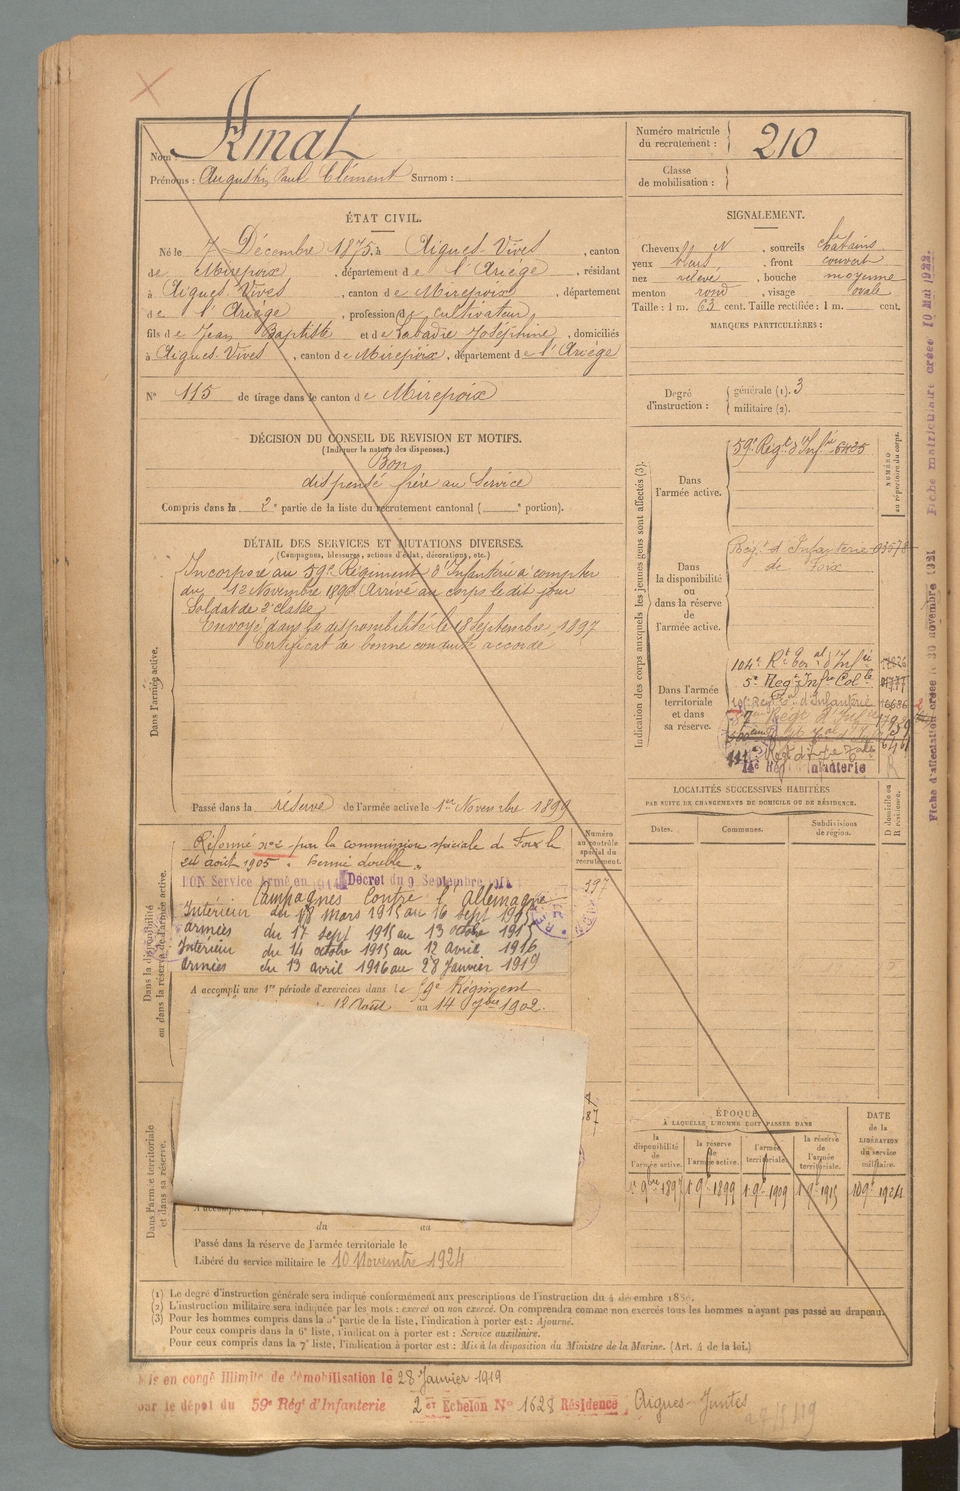 Nom : Amat
Prénoms : Augustin Paul Clément Surnom :
Numéro matricule du recrutement : 210
Classe de mobilisation :
ÉTAT CIVIL.
Né le 7 Décembre 1875, à Aigues-Vives, canton
de Mirepoix, département de l'Ariège, résidant
à Aigues Vives, canton de Mirepoix, département
de l'Ariège, profession de cultivateur,
fils de Jean Baptiste et de Labadie Joséphine, domiciliés
à Aigues-Vives, canton de Mirepoix, département de l'Ariège
N° 115 de tirage dans le canton de Mirepoix
SIGNALEMENT.
Cheveux N, sourcils châtains
yeux bleus, front couvert
nez relevé, bouche moyenne
menton rond, visage ovale
Taille : 1 m. 63 cent. Taille rectifiée : 1 m. cent.
MARQUES PARTICULIÈRES :
Degré d'instruction : générale (1). 3
militaire (2).
DÉCISION DU CONSEIL DE REVISION ET MOTIFS.
(Indiquer la nature des dispenses.)
Bon
dispensé frère au Service
Compris dans la 2e partie de la liste du recrutement cantonal ( e portion).
DÉTAIL DES SERVICES ET MUTATIONS DIVERSES.
(Campagnes, blessures, actions d'éclat, décorations, etc.)
Dans l'armée active.
Incorporé au 59e Régiment d'Infanterie à compter
du 12 Novembre 1896 Arrivé au corps le dit jour
Soldat de 2e classe
Envoyé dans la disponibilité le 18 Septembre 1897
Certificat de bonne conduite accordé
Passé dans la réserve de l'armée active le 1er Novembre 1899
Indication des corps auxquels les jeunes gens sont affectés (3).
NUMÉRO au répertoire du corps.
Dans l'armée active.
59e Régt d'Infrie 6425
Dans la disponibilité ou dans la réserve de l'armée active.
Régt d'Infanterie 03578
de Foix
Dans l'armée territoriale et dans sa réserve.
104e Rt Ter al d'Infie
5e Régt Infrie Colle
14e Rég. Infanterie
LOCALITÉS SUCCESSIVES HABITÉES
PAR SUITE DE CHANGEMENTS DE DOMICILE OU DE RÉSIDENCE.
Dates.
Communes.
Subdivisions de région.
D domicile ou R résidence.
Dans la disponibilité ou dans la réserve de l'armée active.
Réformé n°2 par la commission spéciale de Foix le
24 août 1905.
BON Service Armé en 1914 Décret du 9 Septembre 1914
Campagnes Contre l'Allemagne
Intérieur du 18 mars 1915 au 16 sept 1915
armées du 17 sept 1915 au 13 octobre 1915
Intérieur du 14 octobre 1915 au 12 avril 1916
armées du 13 avril 1916 au 28 Janvier 1919
A accompli une 1re période d'exercices dans le 59e Régiment
18 Août au 14 7bre 1902.
Numéro au contrôle spécial du recrutement.
397
Dans l'armée territoriale et dans sa réserve.
du au
Passé dans la réserve de l'armée territoriale le
Libéré du service militaire le 10 Novembre 1924
ÉPOQUE
À LAQUELLE L'HOMME DOIT PASSER DANS
la disponibilité de l'armée active.
la réserve de l'armée active.
l'armée territoriale.
la réserve de l'armée territoriale.
DATE de la LIBÉRATION du service militaire.
1er 9bre 1897
1 9b 1899
1 9b 1909
1 9b 1915
10 9b 1924
(1) Le degré d'instruction générale sera indiqué conformément aux prescriptions de l'instruction du 4 décembre 1889.
(2) L'instruction militaire sera indiquée par les mots : exercé ou non exercé. On comprendra comme non exercés tous les hommes n'ayant pas passé au drapeau.
(3) Pour les hommes compris dans la 5e partie de la liste, l'indication à porter est : Ajourné.
Pour ceux compris dans la 6e liste, l'indication à porter est : Service auxiliaire.
Pour ceux compris dans la 7e liste, l'indication à porter est : Mis à la disposition du Ministre de la Marine. (Art. 4 de la loi.)
Mis en congé illimité de démobilisation le 28 Janvier 1919
par le dépôt du 59e Régt d'Infanterie 2e Echelon N° 1628 Résidence, Aigues-Juntes
Fiche d'affectation créée le 30 novembre 1921
Fiche matriculaire créée 10 Mai 1922.